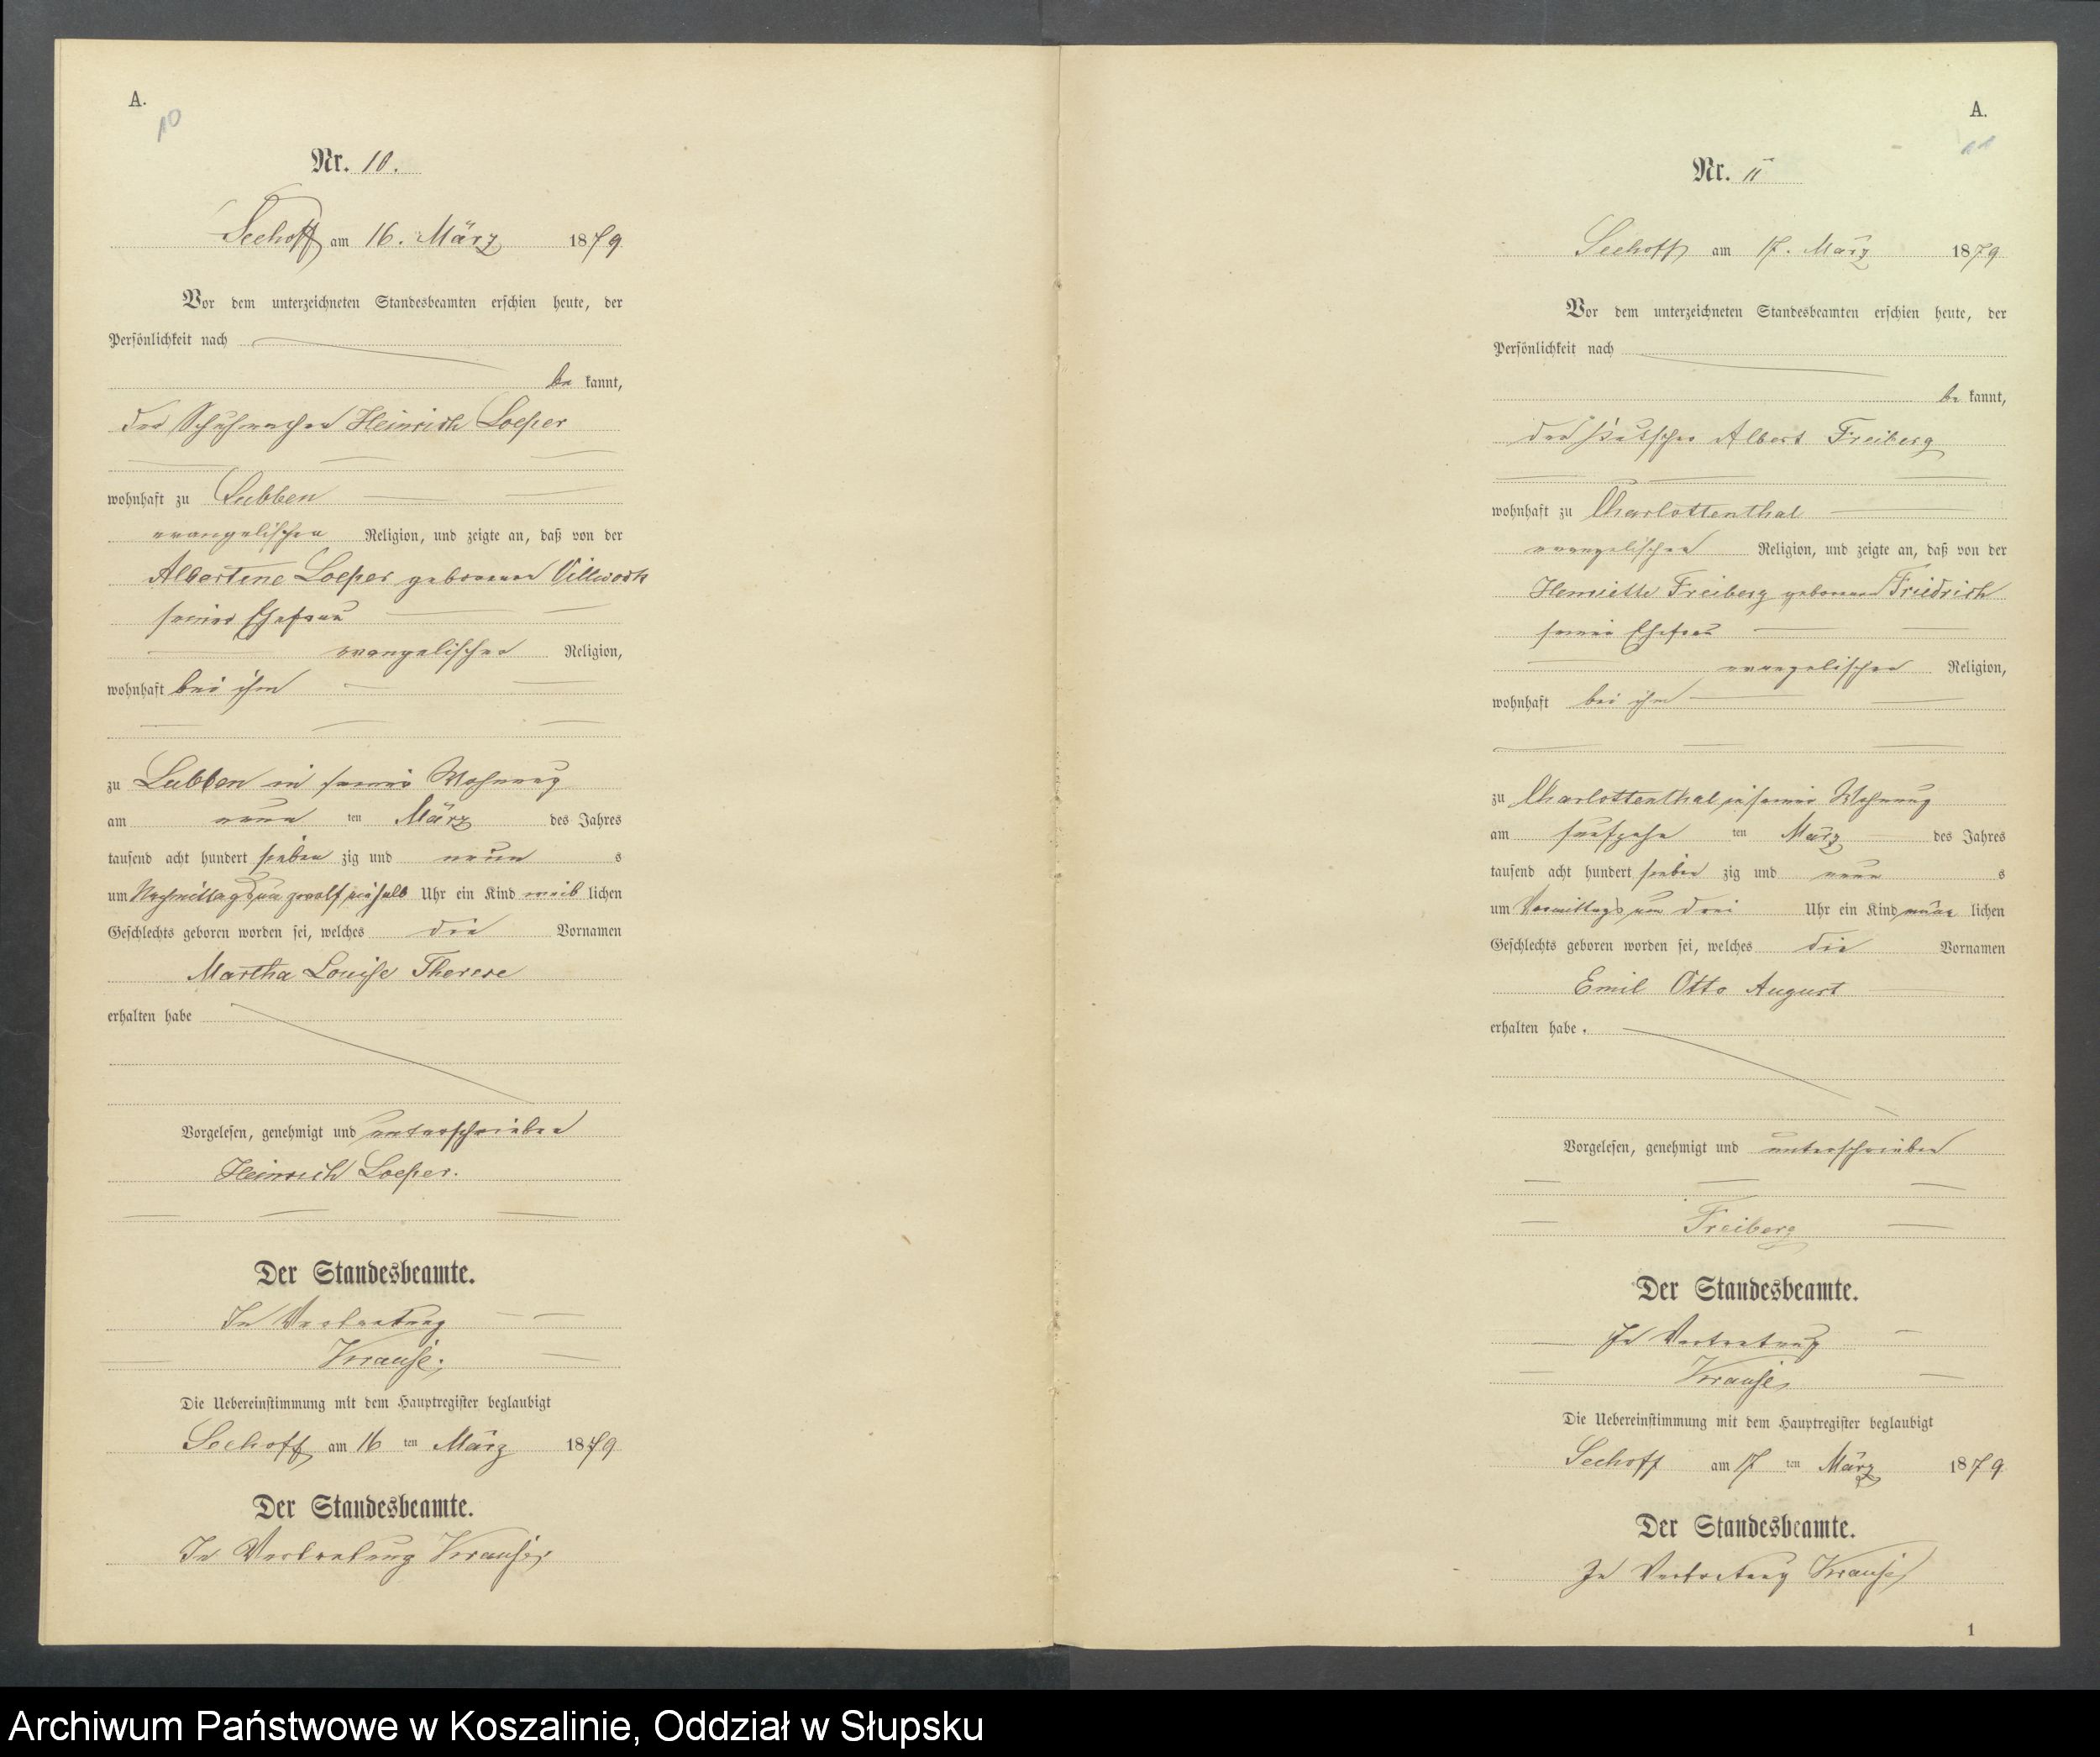 A.
10
Nr. 10.
Seehoff am 16. März 1879
Vor dem unterzeichneten Standesbeamten erschien heute, der
Persönlichkeit nach
be kannt,
der Schuhmacher Heinrich Loeper
wohnhaft zu Lubben
evangelischer Religion, und zeigte an, daß von der
Albertine Loeper geborenen Villwock
seiner Ehefrau
evangelischer Religion,
wohnhaft bei ihm
zu Lubben in seiner Wohnung
am neun ten März des Jahres
tausend acht hundert sieben zig und neun s
um Nachmittags um zwölf einhalb Uhr ein Kind weib lichen
Geschlechts geboren worden sei, welches die Vornamen
Martha Louise Therese
erhalten habe
Vorgelesen, genehmigt und unterschrieben
Heinrich Loeper.
Der Standesbeamte.
In Vertretung
Krause.
Die Uebereinstimmung mit dem Hauptregister beglaubigt
Seehoff am 16 ten März 1879
Der Standesbeamte.
In Vertretung Krause
A.
11
Nr. 11
Seehoff am 17. März 1879
Vor dem unterzeichneten Standesbeamten erschien heute, der
Persönlichkeit nach
be kannt,
der Kutscher Albert Freiberg
wohnhaft zu Charlottenthal
evangelischer Religion, und zeigte an, daß von der
Henriette Freiberg geborenen Friedrich
seiner Ehefrau
evangelischer Religion,
wohnhaft bei ihm
zu Charlottenthal in seiner Wohnung
am fünfzehn ten März des Jahres
tausend acht hundert sieben zig und neun s
um Vormittags um drei Uhr ein Kind männ lichen
Geschlechts geboren worden sei, welches die Vornamen
Emil Otto August
erhalten habe.
Vorgelesen, genehmigt und unterschrieben
Freiberg
Der Standesbeamte.
In Vertretung
Krause
Die Uebereinstimmung mit dem Hauptregister beglaubigt
Seehoff am 17 ten März 1879
Der Standesbeamte.
In Vertretung Krause
1
Archiwum Państwowe w Koszalinie, Oddział w Słupsku